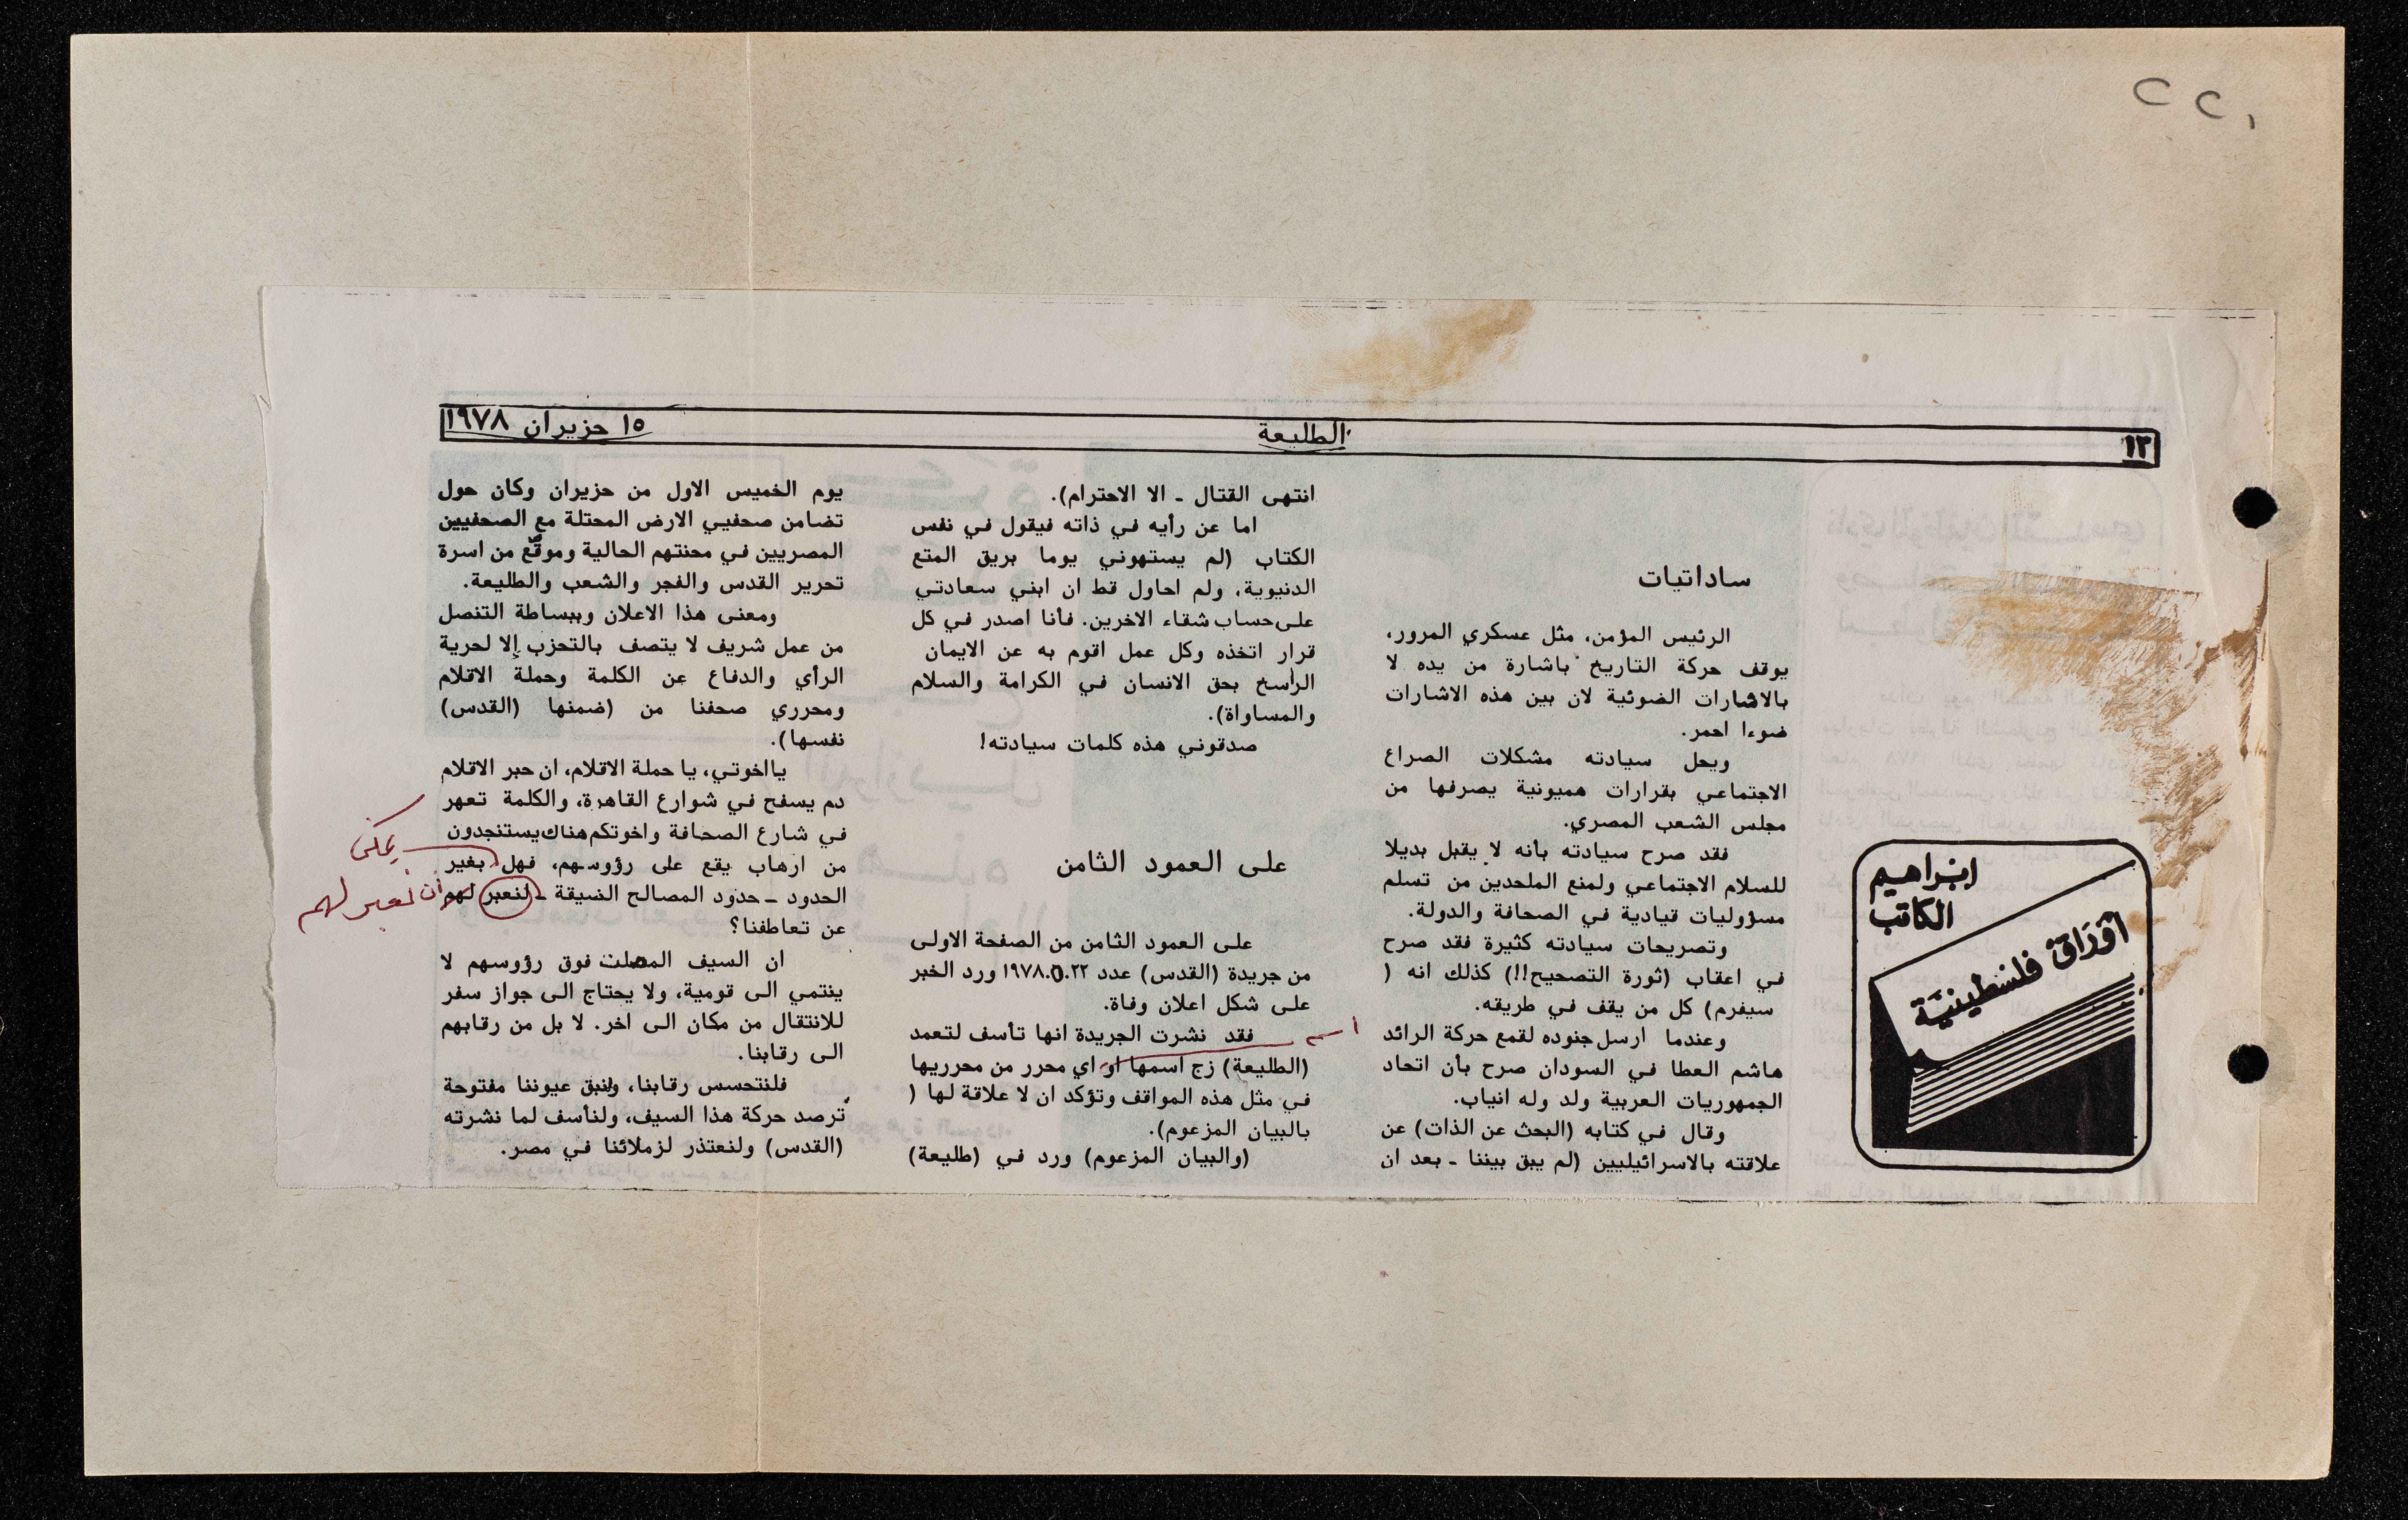 ١٢
الطليعة
١٥ حزيران ١٩٧٨
ابراهيم
الكاتب
أوراق فلسطينية
ساداتيات
الرئيس المؤمن، مثل عسكري المرور،
يوقف حركة التاريخ باشارة من يده لا
بالاشارات الضوئية لان بين هذه الاشارات
ضوءا احمر.
ويحل سيادته مشكلات الصراع
الاجتماعي بقرارات هميونية يصرفها من
مجلس الشعب المصري.
فقد صرح سيادته بأنه لا يقبل بديلا
للسلام الاجتماعي ولمنع الملحدين من تسلم
مسؤوليات قيادية في الصحافة والدولة.
وتصريحات سيادته كثيرة فقد صرح
في اعقاب (ثورة التصحيح!!) كذلك انه (
سيفرم) كل من يقف في طريقه.
وعندما ارسل جنوده لقمع حركة الرائد
هاشم العطا في السودان صرح بأن اتحاد
الجمهوريات العربية ولد وله انياب.
وقال في كتابه (البحث عن الذات) عن
علاقته بالاسرائيليين (لم يبق بيننا - بعد ان
انتهى القتال - الا الاحترام).
اما عن رأيه في ذاته فيقول في نفس
الكتاب (لم يستهوني يوما بريق المتع
الدنيوية، ولم احاول قط ان ابني سعادتي
على حساب شقاء الاخرين. فأنا اصدر في كل
قرار اتخذه وكل عمل اقوم به عن الايمان
الراسخ بحق الانسان في الكرامة والسلام
والمساواة).
صدقوني هذه كلمات سيادته!
على العمود الثامن
على العمود الثامن من الصفحة الاولى
من جريدة (القدس) عدد ١٩٧٨.٥.٢٢ ورد الخبر
على شكل اعلان وفاة.
فقد نشرت الجريدة انها تأسف لتعمد
(الطليعة) زج اسمها او اي محرر من محرريها
اسم
في مثل هذه المواقف وتؤكد ان لا علاقة لها (
بالبيان المزعوم).
(والبيان المزعوم) ورد في (طليعة)
يوم الخميس الاول من حزيران وكان حول
تضامن صحفيي الارض المحتلة مع الصحفيين
المصريين في محنتهم الحالية وموقّع من اسرة
تحرير القدس والفجر والشعب والطليعة.
ومعنى هذا الاعلان وببساطة التنصل
من عمل شريف لا يتصف بالتحزب إلا لحرية
الرأي والدفاع عن الكلمة وحملة الاقلام
ومحرري صحفنا من (ضمنها (القدس)
نفسها).
يااخوتي، يا حملة الاقلام، ان حبر الاقلام
دم يسفح في شوارع القاهرة، والكلمة تعهر
في شارع الصحافة واخوتكم هناك يستنجدون
من ارهاب يقع على رؤوسهم، فهل بغير
يمكن
الحدود - حدود المصالح الضيقة - لنعبر لهم
أن نعبر لهم
عن تعاطفنا؟
ان السيف المصلت فوق رؤوسهم لا
ينتمي الى قومية، ولا يحتاج الى جواز سفر
للانتقال من مكان الى اخر. لا بل من رقابهم
الى رقابنا.
فلنتحسس رقابنا، ولنبق عيوننا مفتوحة
ترصد حركة هذا السيف، ولنأسف لما نشرته
(القدس) ولنعتذر لزملائنا في مصر.